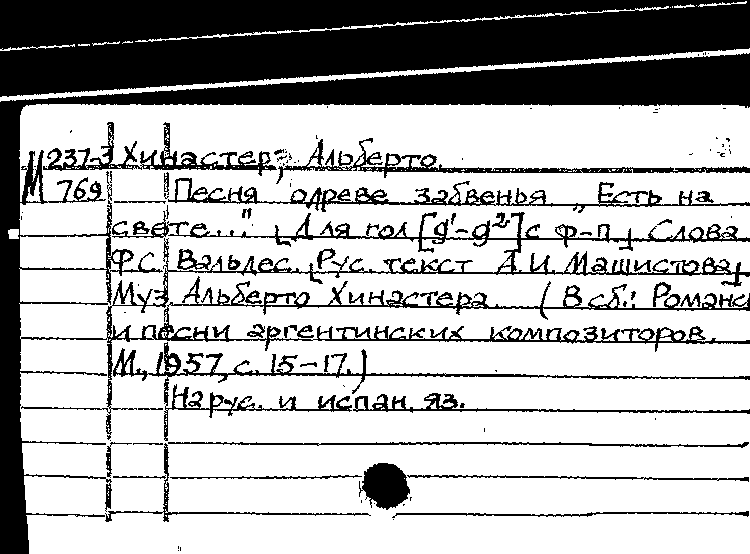 М 237-3 Хинастера, Альберто.
769 Песня одреве забвенья „Есть на
свете..." [Для гол [g'-g²] с ф-п] Слова
Ф.С. Вальдес. [Рус. текст А.И. Машистова]
Муз. Альберто Хинастера. (В сб.: Романс
и песни аргентинских композиторов.
М., 1957, с. 15-17.)
На рус. и испан. яз.